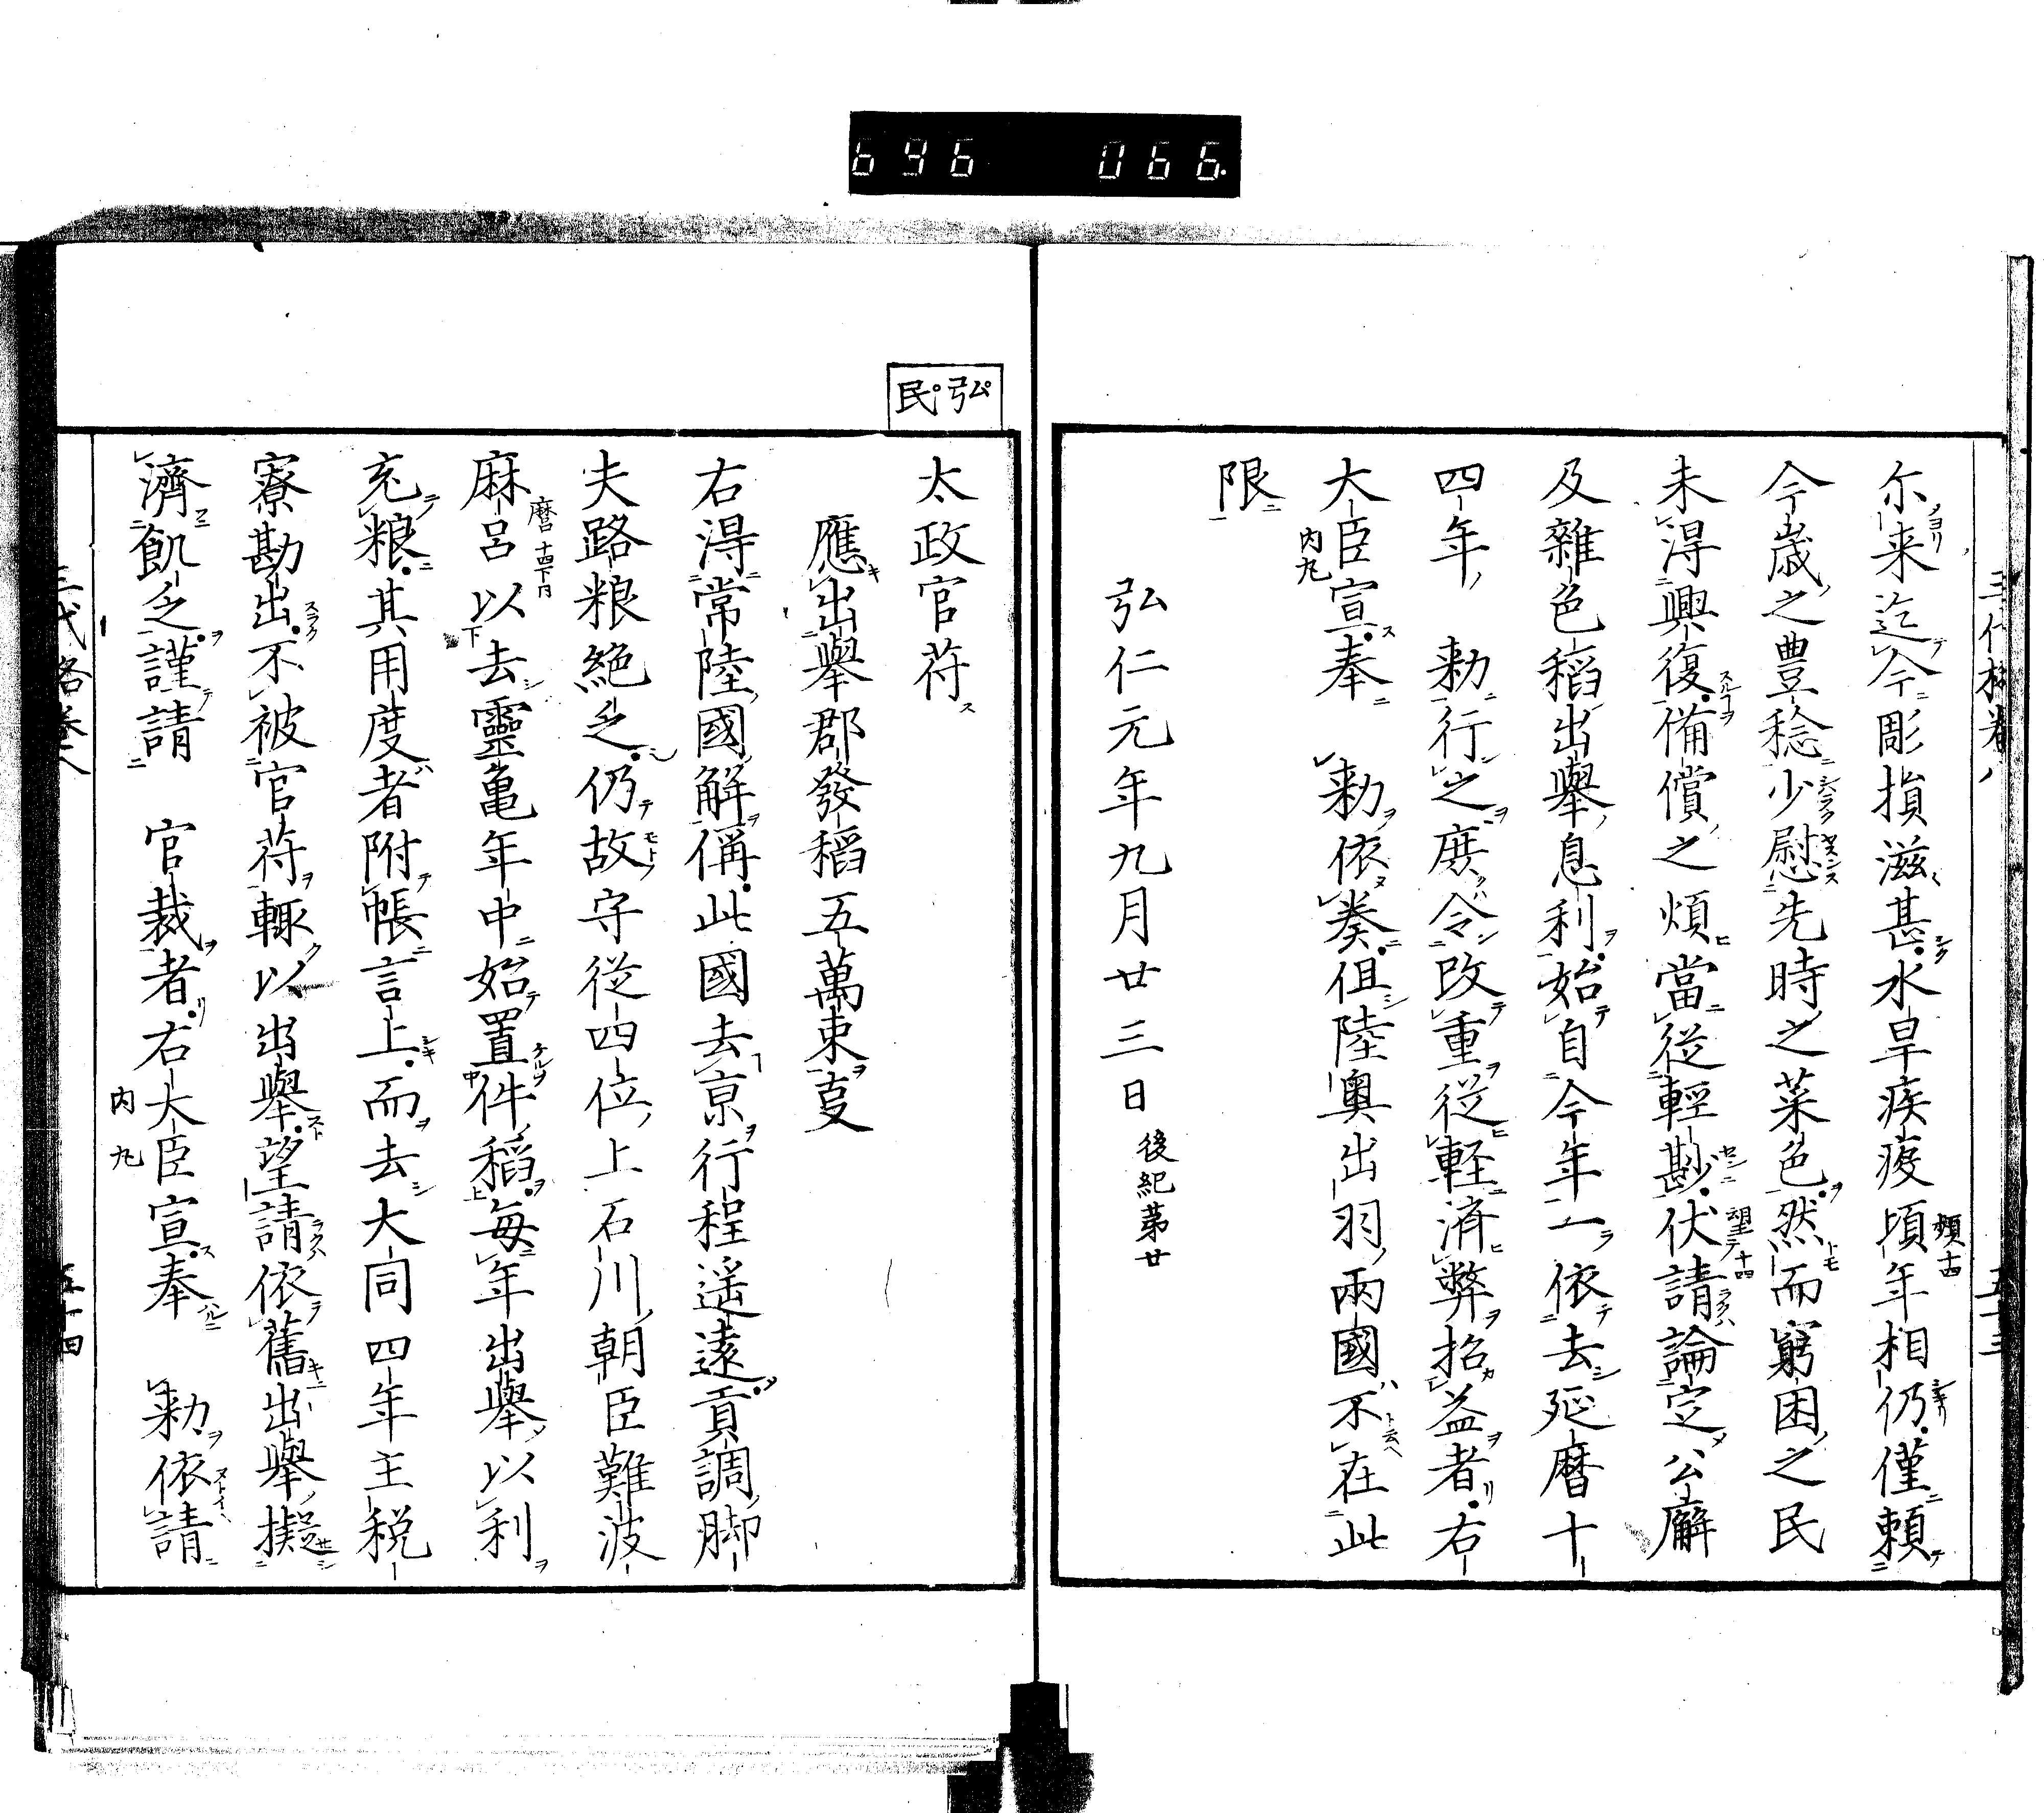 696 066.
尓来迄今彫損滋甚水旱疾疫頃年相仍僅頼
今歳之豊稔少慰先時之菜色然而窮困之民
未淂興復備償之煩當從輕斟伏請論定公廨
及雜色稻出擧息利始自今年一依去延暦十
四年 勅行之庶令改重從軽済弊招益者右
大臣宣奉 勅依奏但陸奥出羽兩國不在此
内九
限
弘仁元年九月廿三日 後紀第廿
弘民
太政官苻
應出擧郡發稻五萬束叓
右淂常陸國解偁此國去京行程遥遠貢調脚
夫路粮絶乏仍故守從四位上石川朝臣難波
麻呂以去靈亀年中始置件稻毎年出擧以利
充粮其用度者附帳言上而去大同四年主税
寮勘出不被官苻輙以出擧望請依舊出擧擬
濟飢乏謹請 官裁者右大臣宣奉 勅依請
内九